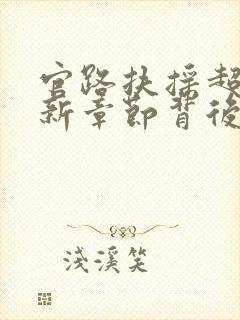 官路扶摇超
新章節背後
淺溪笑